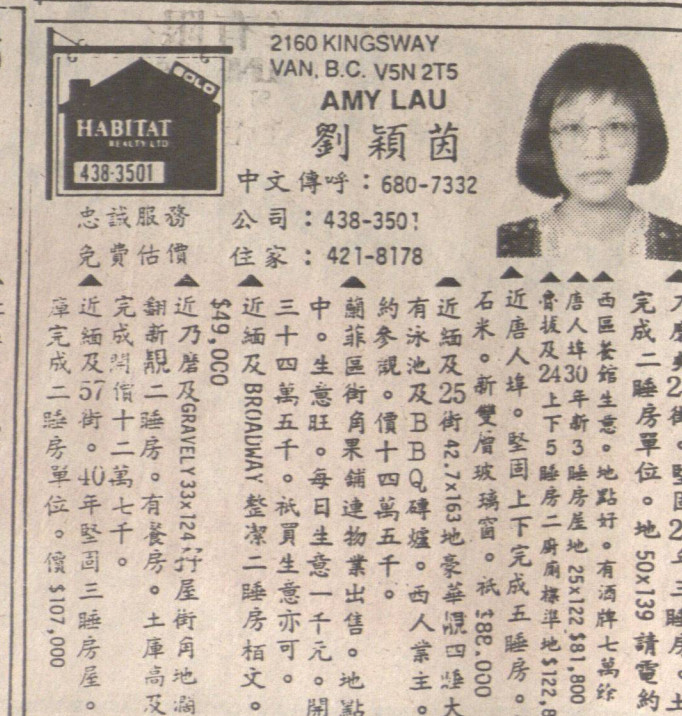 SOLD
HABITAT
REALTY LTD
438-3501
2160 KINGSWAY
VAN, B.C. V5N 2T5
AMY LAU
劉穎茵
中文傳呼：680-7332
忠誠服務
免費估價
公司：438-3501
住家：421-8178
街。堅固2年三睡房。土
完成二睡房單位。地50x139請電約
▲西區餐館生意。地點好。有酒牌七萬餘
▲唐人埠30年新3睡房屋地 25x122 $81,800
▲及24上下5睡房二廚廁標準地$122,8
▲近唐人埠。堅固上下完成五睡房。
石米。新雙層玻璃窗。祇$88,000
▲近緬及25街42.7x163地豪華靚四睡大
有泳池及BBQ磚爐。西人業主。
約參觀。價十四萬五千。
▲蘭菲區街角果鋪連物業出售。地點
中。生意旺。每日生意一千元。開
三十四萬五千。祇買生意亦可。
▲近緬及BROADWAY整潔二睡房栢文。
$49,000
▲近乃磨及GRAVELY 33x124 孖屋街角地濶
翻新靚二睡房。有餐房。土庫高及
完成開價十二萬七千。
▲近緬及57街。40年堅固三睡房屋。
庫完成二睡房單位。價$107,000